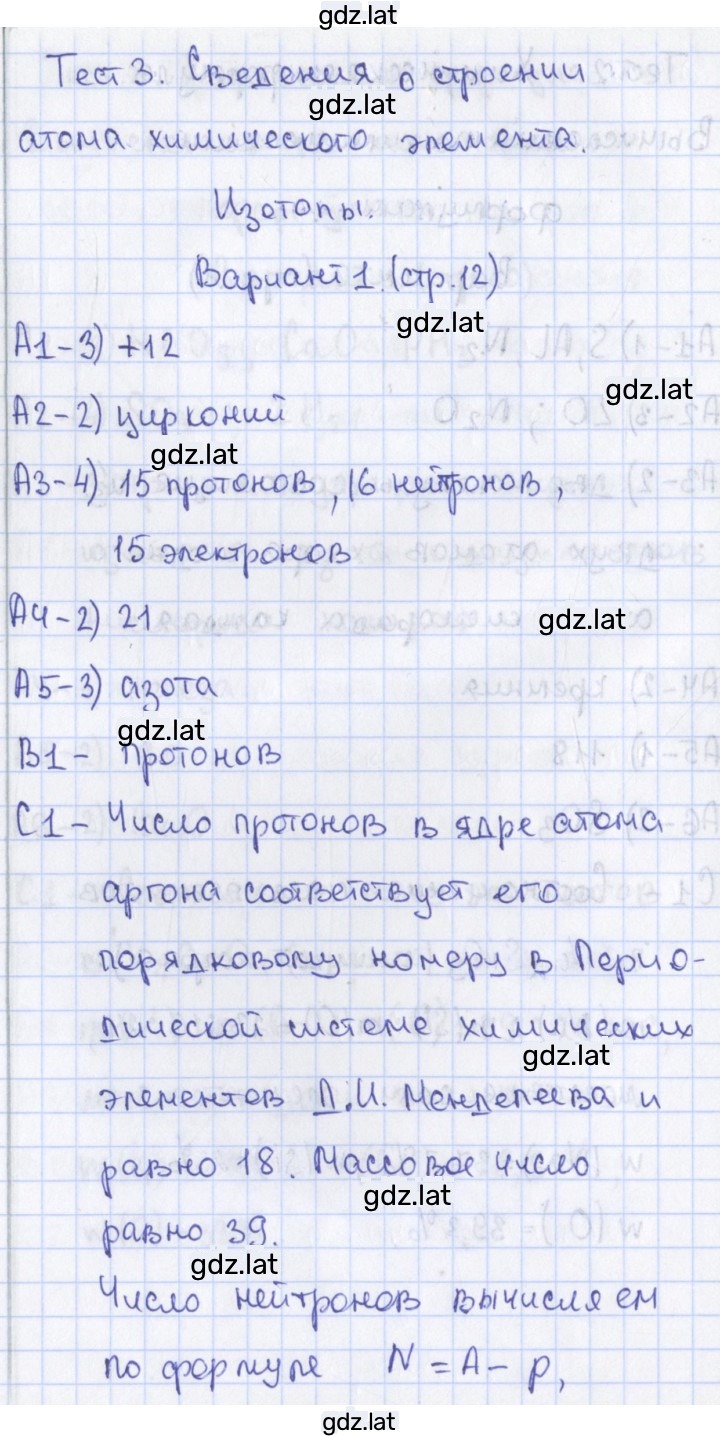 gdz.lat
Тест 3. Сведения о строении
gdz.lat
атома химического элемента.
Изотопы.
Вариант 1. (стр. 12)
gdz.lat
А1-3) +12
gdz.lat
А2-2) цирконий
gdz.lat
А3-4) 15 протонов, 16 нейтронов,
15 электронов
А4-2) 21
gdz.lat
А5-3) азота
gdz.lat
В1- протонов
С1- Число протонов в ядре атома
аргона соответствует его
порядковому номеру в Перио-
дической системе химических
gdz.lat
элементов Д.И. Менделеева и
равно 18. Массовое число
gdz.lat
равно 39.
gdz.lat
Число нейтронов вычисляем
по формуле N = A - p,
gdz.lat